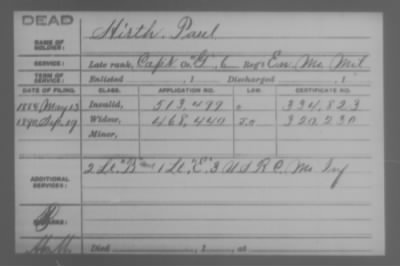 DEAD
NAME OF SOLDIER: Hirth, Paul
SERVICE: Late rank, Capt. Co. "G", 6 Reg't En. Mo. Mil
TERM OF SERVICE: Enlisted , 1 Discharged , 1
DATE OF FILING. CLASS. APPLICATION NO. LAW. CERTIFICATE NO.
1884 May 13 Invalid, 513,499 334,823
1890 Sep. 19 Widow, 468,440 320,230
Minor,
ADDITIONAL SERVICES: 2 Lt. "B" and 1 Lt. "E" 3 U S R C. Mo Inf
REMARKS:
Died , 1 , at